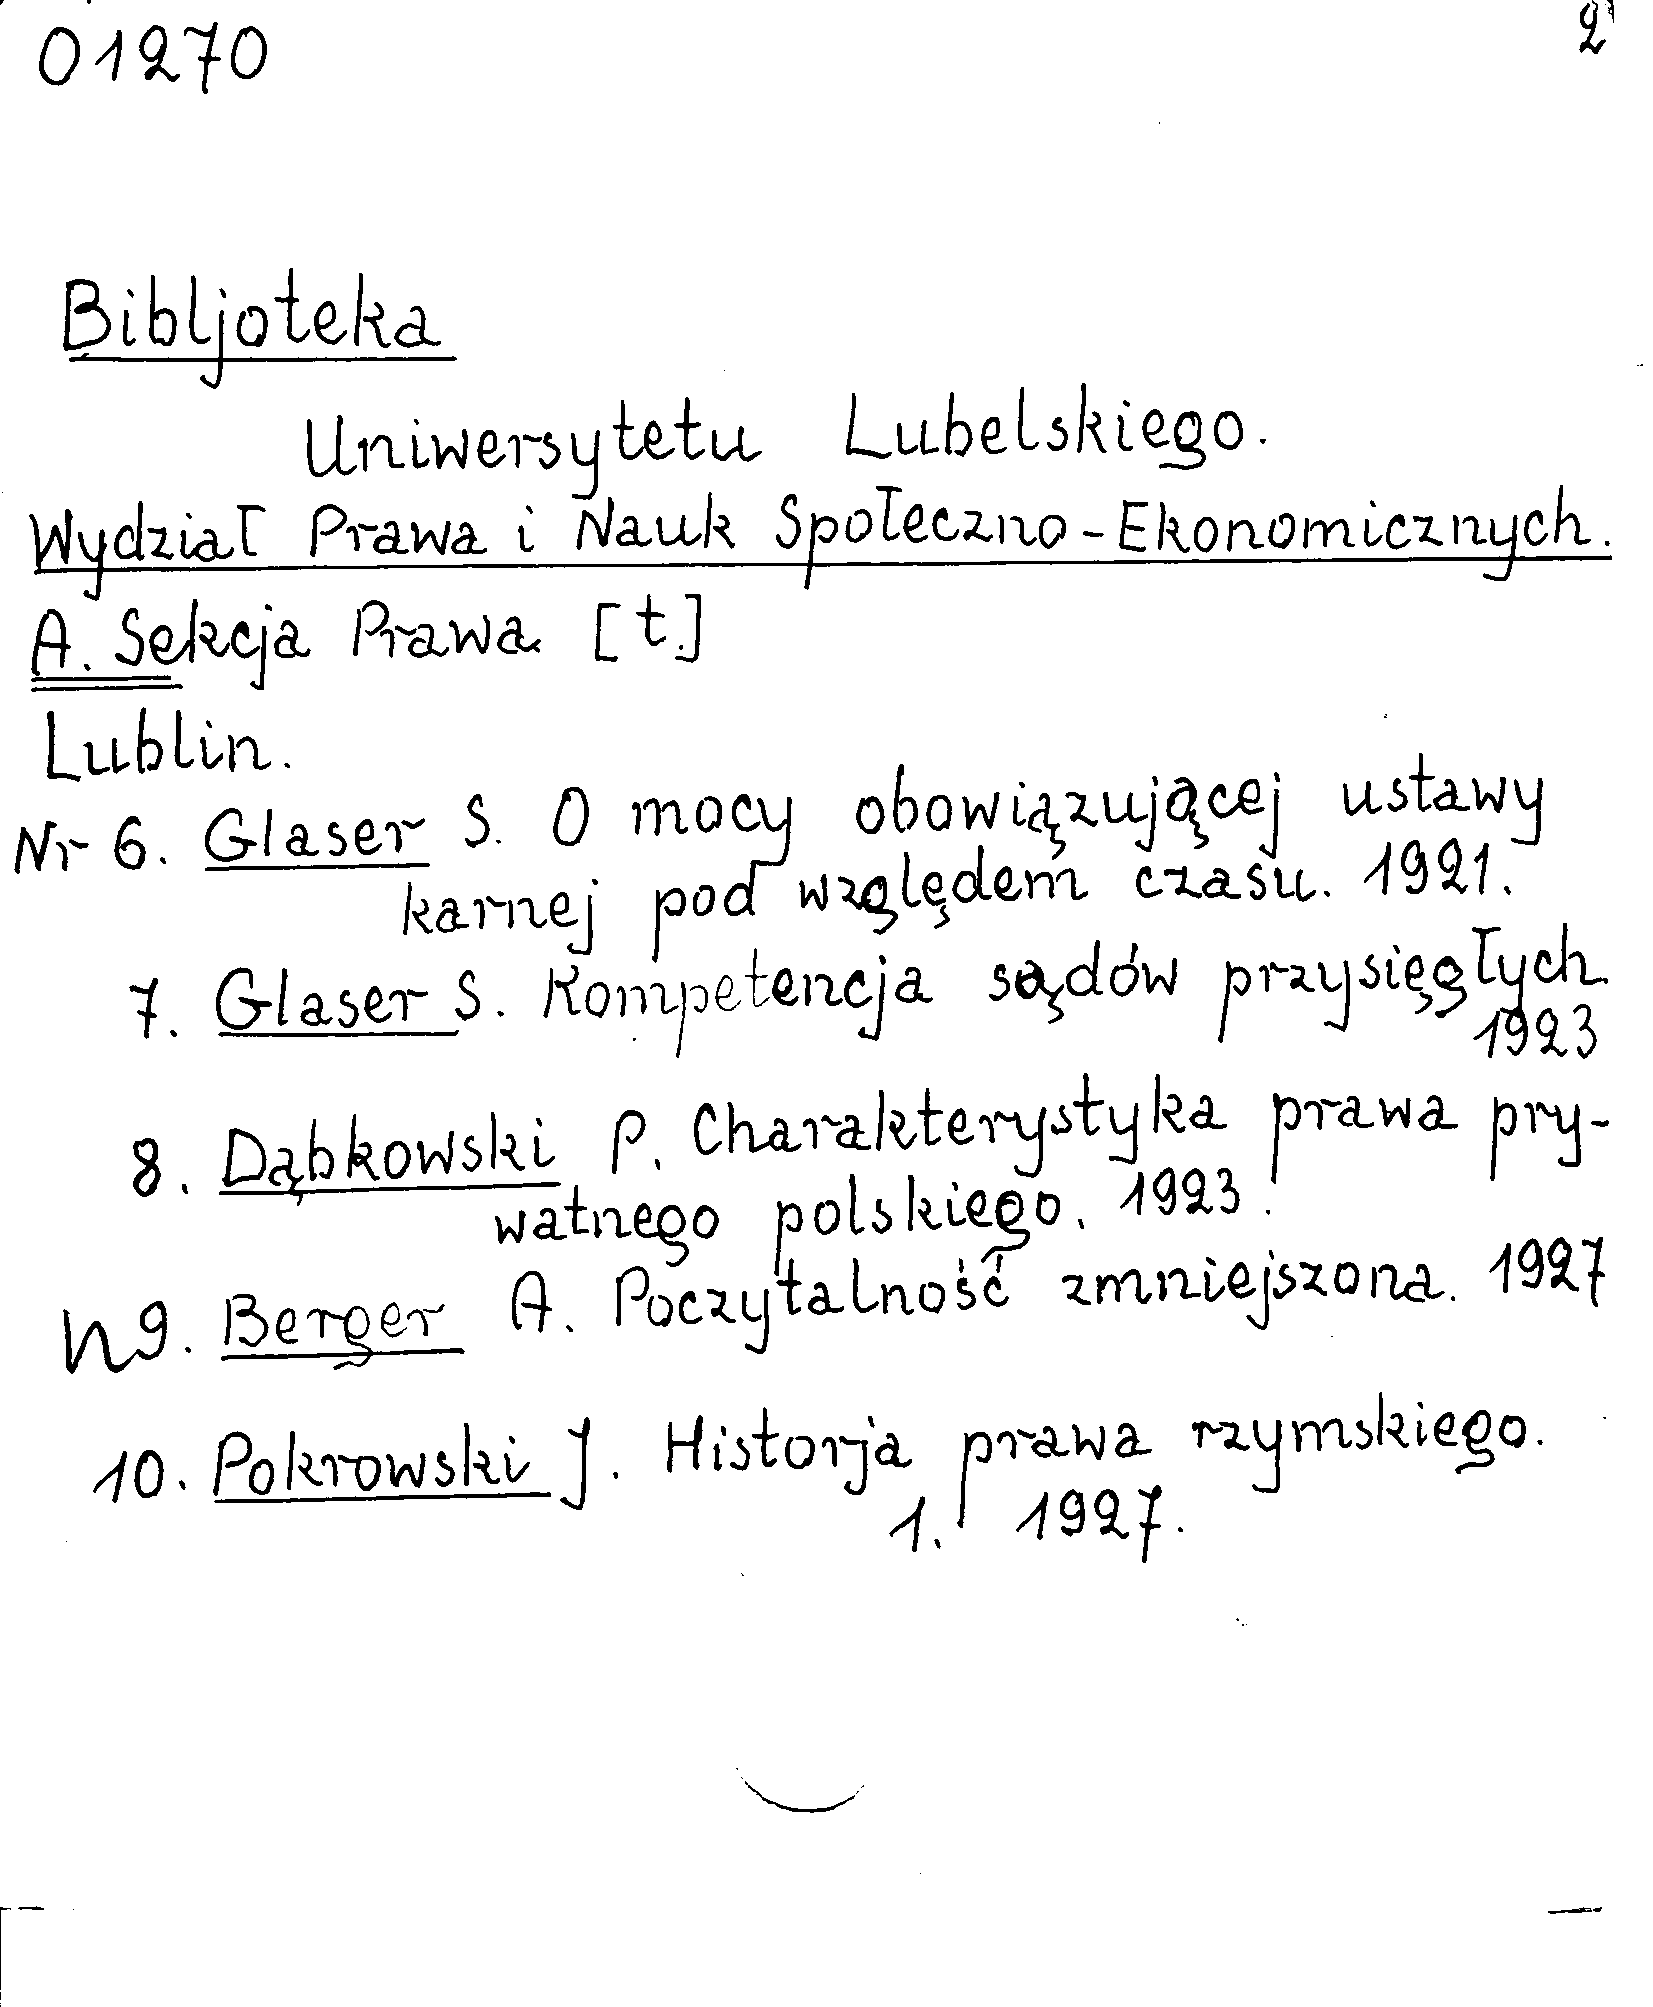 01270 2
Bibljoteka
Uniwersytetu Lubelskiego.
Wydział Prawa i Nauk Społeczno-Ekonomicznych.
A. Sekcja Prawa [t.]
Lublin.
Nr 6. Glaser S. O mocy obowiązującej ustawy
karnej pod względem czasu. 1921.
7. Glaser S. Kompetencja sądów przysięgłych
1923
8. Dąbkowski P. Charakterystyka prawa pry-
watnego polskiego. 1923.
N9. Berger A. Poczytalność zmniejszona. 1927
10. Pokrowski J. Historja prawa rzymskiego.
1. 1927.